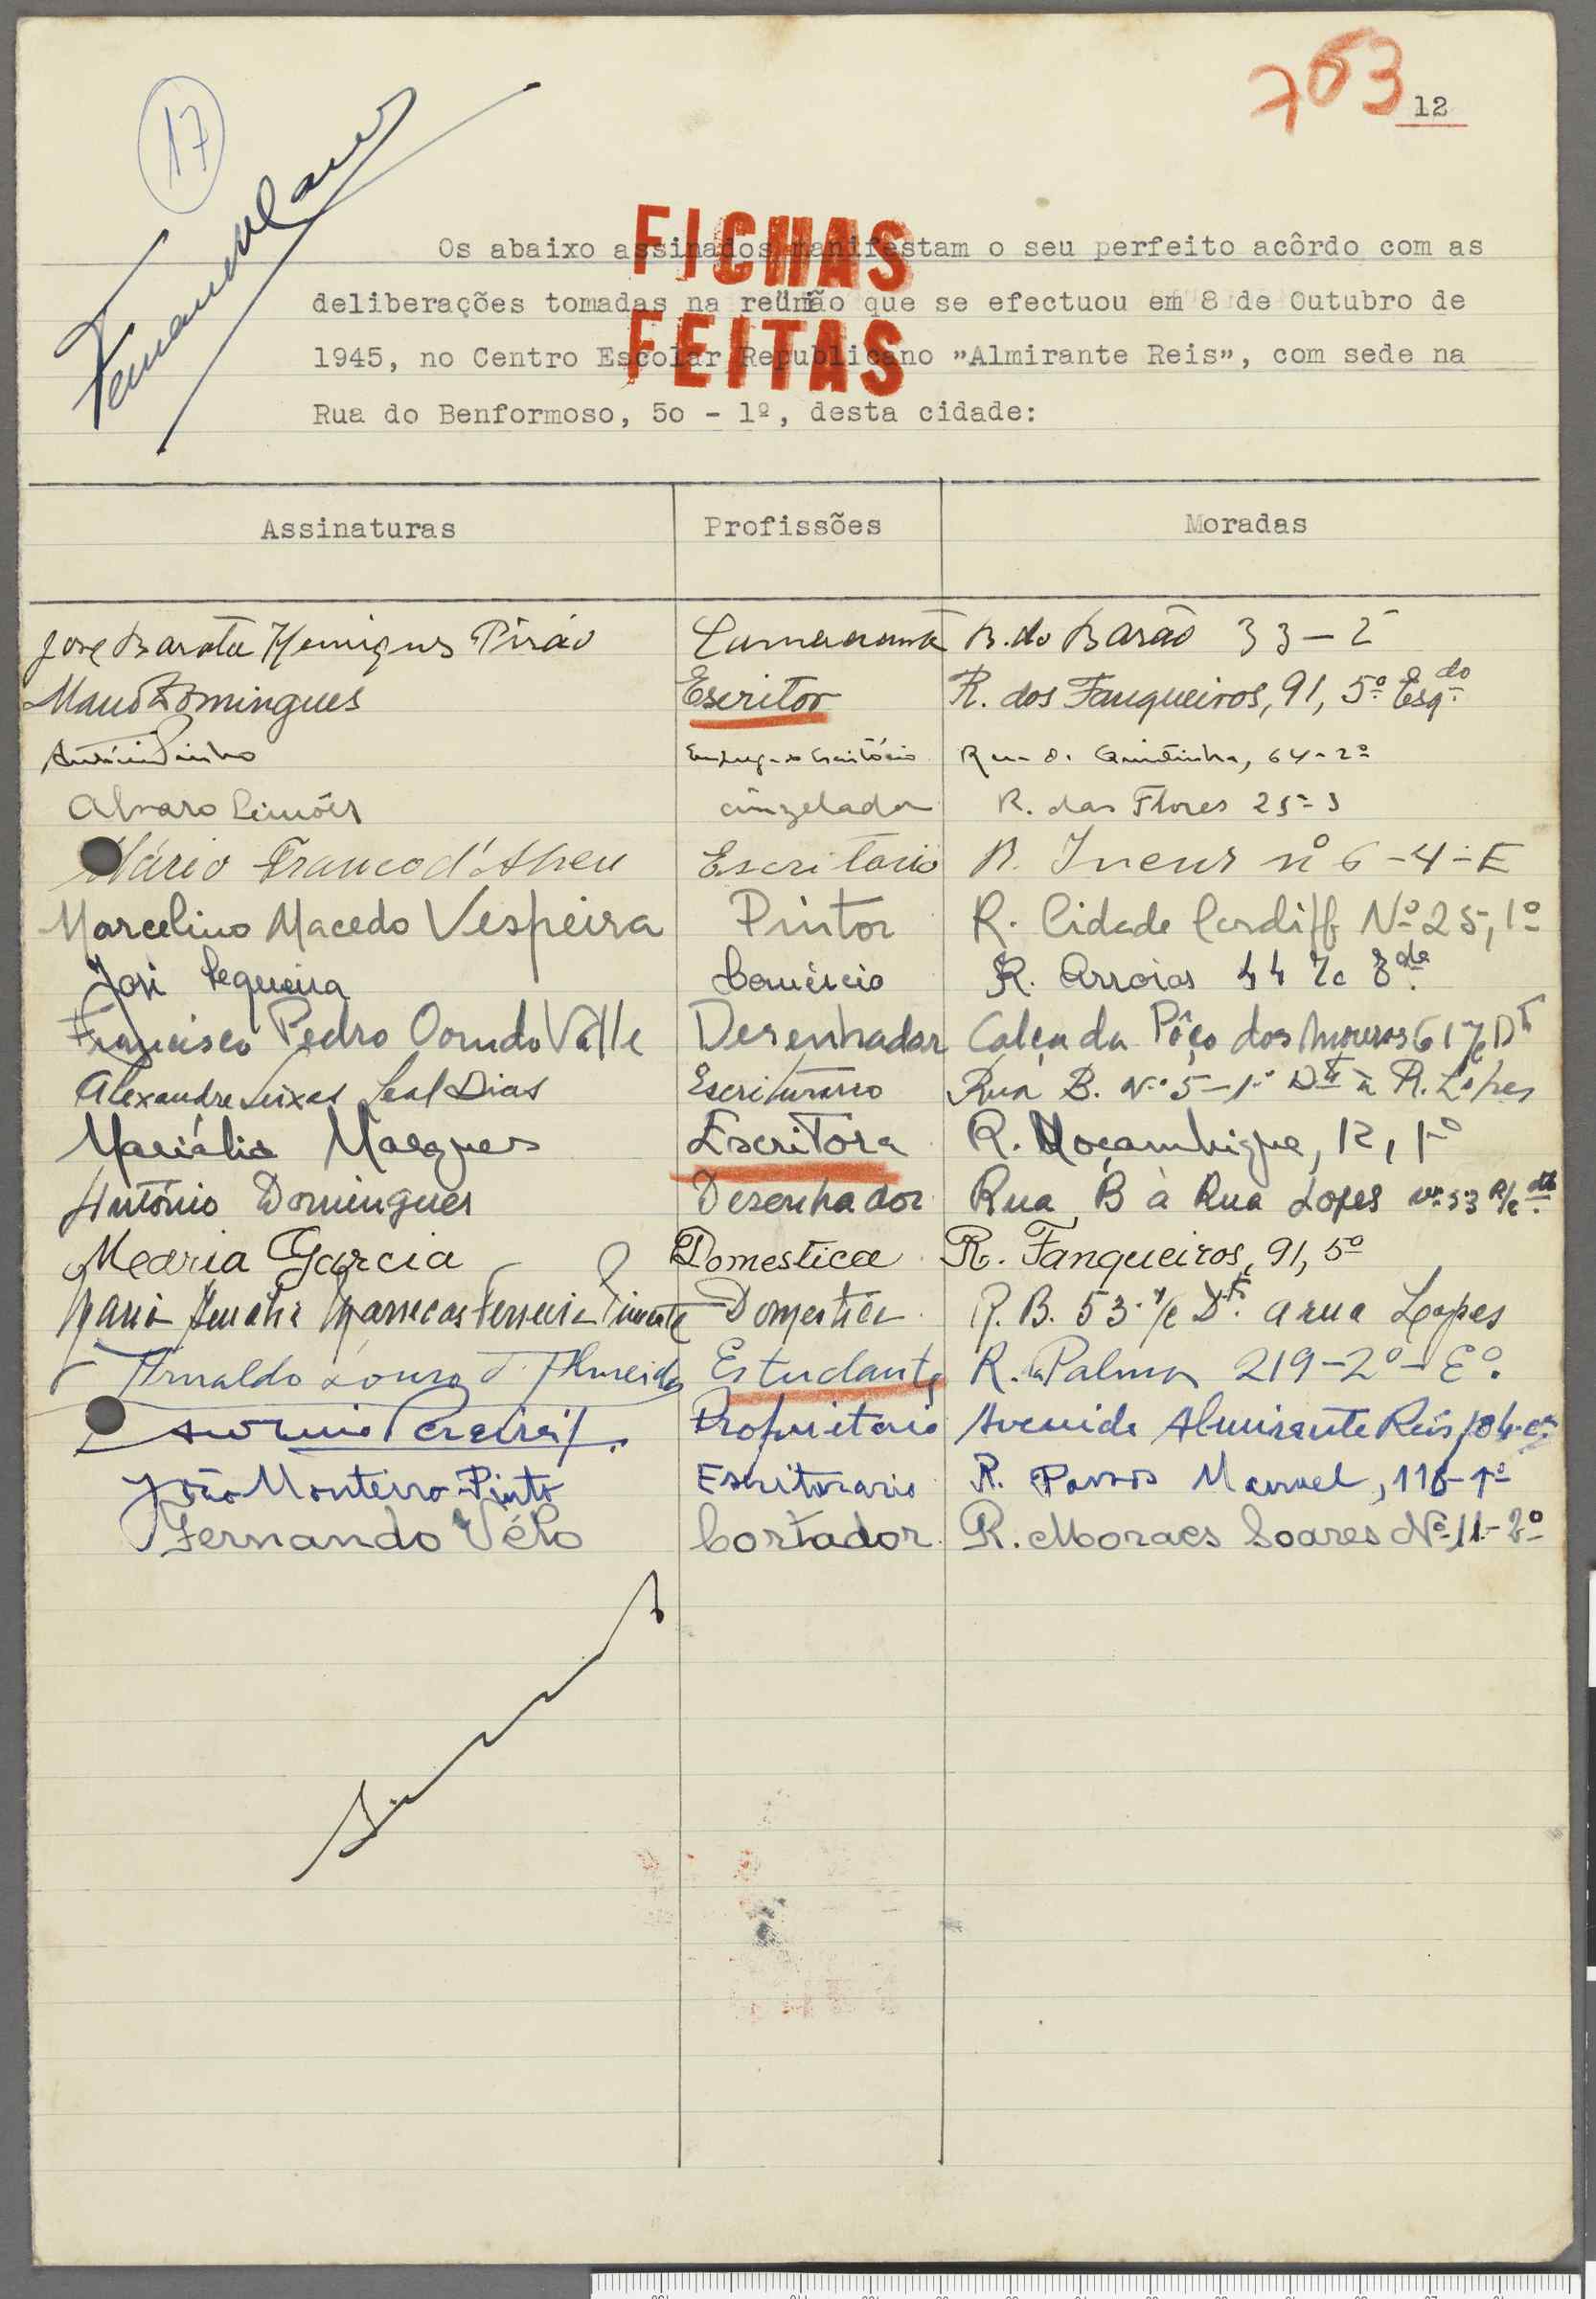 17
763
12
FICHAS
Os abaixo assinados manifestam o seu perfeito acôrdo com as
deliberações tomadas na reünião que se efectuou em 8 de Outubro de
FEITAS
1945, no Centro Escolar Republicano "Almirante Reis", com sede na
Rua do Benformoso, 50 - 1º, desta cidade:
Assinaturas Profissões Moradas
José Barata R. do Barão 33-2
Domingues Escritor R. dos Fanqueiros, 91, 5º Esqdo
António Pinho 64-2º
Alvaro Simões cinzelador R. das Flores 25-3
Mário Franco d'Abreu Escritorio R. nº 6-4-E
Marcelino Macedo Vespeira Pintor R. Cidade Cardiff Nº 25, 1º
José Sequeira Comércio R. Arroios
Francisco Pedro Valle Desenhador Calçada Pôço dos Mouros 61 r/c Dt
Alexandre Seixas Leal Dias Escriturario Rua B. Nº 5-1º Dtº à R. Lopes
Mariália Marques Escritôra R. Moçambique, 12, 1º
António Domingues Desenhador Rua B à Rua Lopes nº 53 R/c dtº
Maria Garcia Domestica R. Fanqueiros, 91, 5º
Maria Amalia Marrecas Ferreira Pimenta Domestica R. B. 53 r/c Dtº a rua Lopes
Arnaldo Louro d'Almeida Estudante R. da Palma 219-2º-Eº.
Antonio Pereira Proprietario Avenida Almirante Reis
João Monteiro Pinto Escriturario R. Passos Manuel, 116-1º
Fernando Vélo Cortador R. Moraes Soares Nº 11-2º